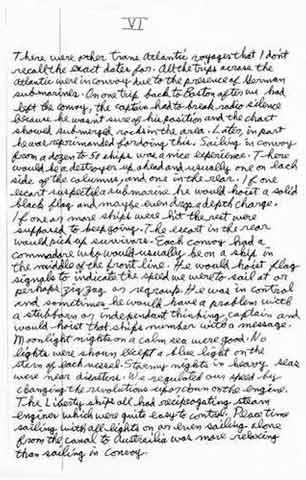 VI
There were other trans Atlantic voyages that I don't
recall the exact dates for. All the trips across the
Atlantic were in convoy due to the presence of German
submarines. On one trip back to Boston after we had
left the convoy, the captain had to break radio silence
because he wasn't sure of his position and the chart
showed submerged rocks in the area. Later, in port
he was reprimanded for doing this. Sailing in convoy
from a dozen to 50 ships was a nice experience. There
would be a destroyer up ahead and usually one on each
side of the columns, and one in the rear. If one
escort suspects a submarine he would hoist a solid
black flag and maybe even drop a depth charge.
If one or more ships were hit the rest were
supposed to keep going. The escort in the rear
would pick up survivors. Each convoy had a
commodore who would usually be on a ship in
the middle of the front line. He would hoist flag
signals to indicate the speed we were to sail at or
perhaps zig zag or regroup. He was in control
and sometimes he would have a problem with
a stubborn or independent thinking captain and
would hoist that ships number with a message.
Moonlight nights on a calm sea were good. No
lights were shown except a blue light on the
stern of each vessel. Stormy nights in heavy seas
were near disasters. We regulated our speed by
changing the revolutions up or down on the engine.
The Liberty ships all had reciprocating steam
engines which were quite easy to control. Peace time
sailing with all lights on or even sailing alone
from the canal to Austrailia was more relaxing
than sailing in convoy.